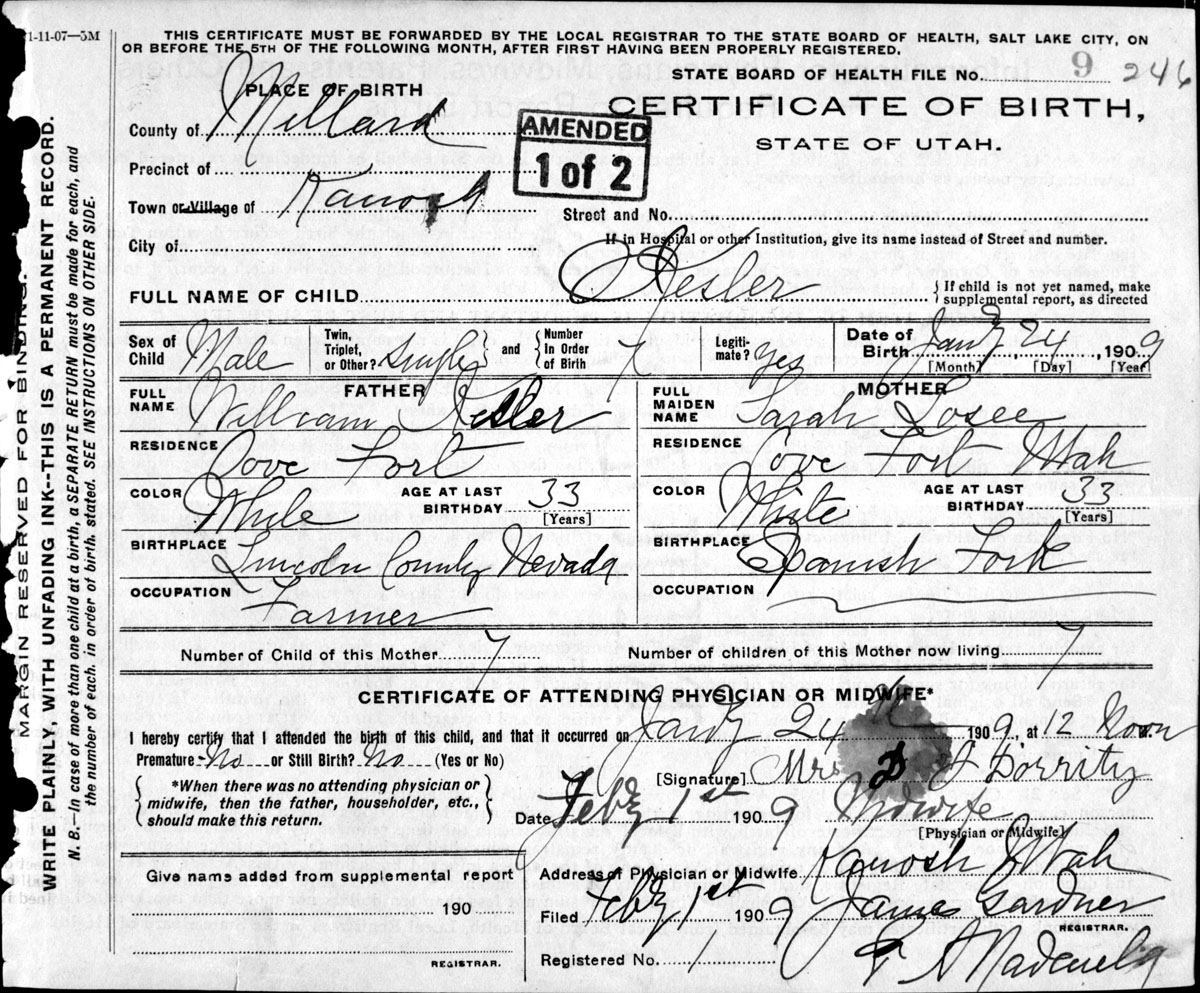 1-11-07—5M
THIS CERTIFICATE MUST BE FORWARDED BY THE LOCAL REGISTRAR TO THE STATE BOARD OF HEALTH, SALT LAKE CITY, ON
OR BEFORE THE 5TH OF THE FOLLOWING MONTH, AFTER FIRST HAVING BEEN PROPERLY REGISTERED.
STATE BOARD OF HEALTH FILE No. 9 246
PLACE OF BIRTH
CERTIFICATE OF BIRTH,
STATE OF UTAH.
County of Millard
AMENDED
1 of 2
Precinct of
Town or Village of Kanosh
Street and No.
City of
If in Hospital or other Institution, give its name instead of Street and number.
FULL NAME OF CHILD Kesler
If child is not yet named, make supplemental report, as directed
Sex of Child Male
Twin, Triplet, or Other? single and Number In Order of Birth 7
Legitimate? Yes
Date of Birth Jany 24, 1909
[Month] [Day] [Year]
FATHER
FULL NAME William Kesler
RESIDENCE Cove Fort
COLOR White AGE AT LAST BIRTHDAY 33 [Years]
BIRTHPLACE Lincoln County Nevada
OCCUPATION Farmer
MOTHER
FULL MAIDEN NAME Sarah Losee
RESIDENCE Cove Fort Utah
COLOR White AGE AT LAST BIRTHDAY 33 [Years]
BIRTHPLACE Spanish Fork
OCCUPATION
Number of Child of this Mother 7 Number of children of this Mother now living 7
CERTIFICATE OF ATTENDING PHYSICIAN OR MIDWIFE*
I hereby certify that I attended the birth of this child, and that it occurred on Jany 24 1909, at 12 Noon
Premature No or Still Birth? No (Yes or No)
[Signature] Mrs D Dorrity
*When there was no attending physician or
midwife, then the father, householder, etc.,
should make this return.
Date Feby 1st 1909 Midwife
[Physician or Midwife]
Give name added from supplemental report
190
REGISTRAR.
Address of Physician or Midwife Kanosh Utah
Filed Feby 1st 1909 James Gardner
REGISTRAR.
Registered No. 7
MARGIN RESERVED FOR BINDING.
WRITE PLAINLY, WITH UNFADING INK--THIS IS A PERMANENT RECORD.
N. B.—In case of more than one child at a birth, a SEPARATE RETURN must be made for each, and
the number of each, in order of birth, stated. SEE INSTRUCTIONS ON OTHER SIDE.